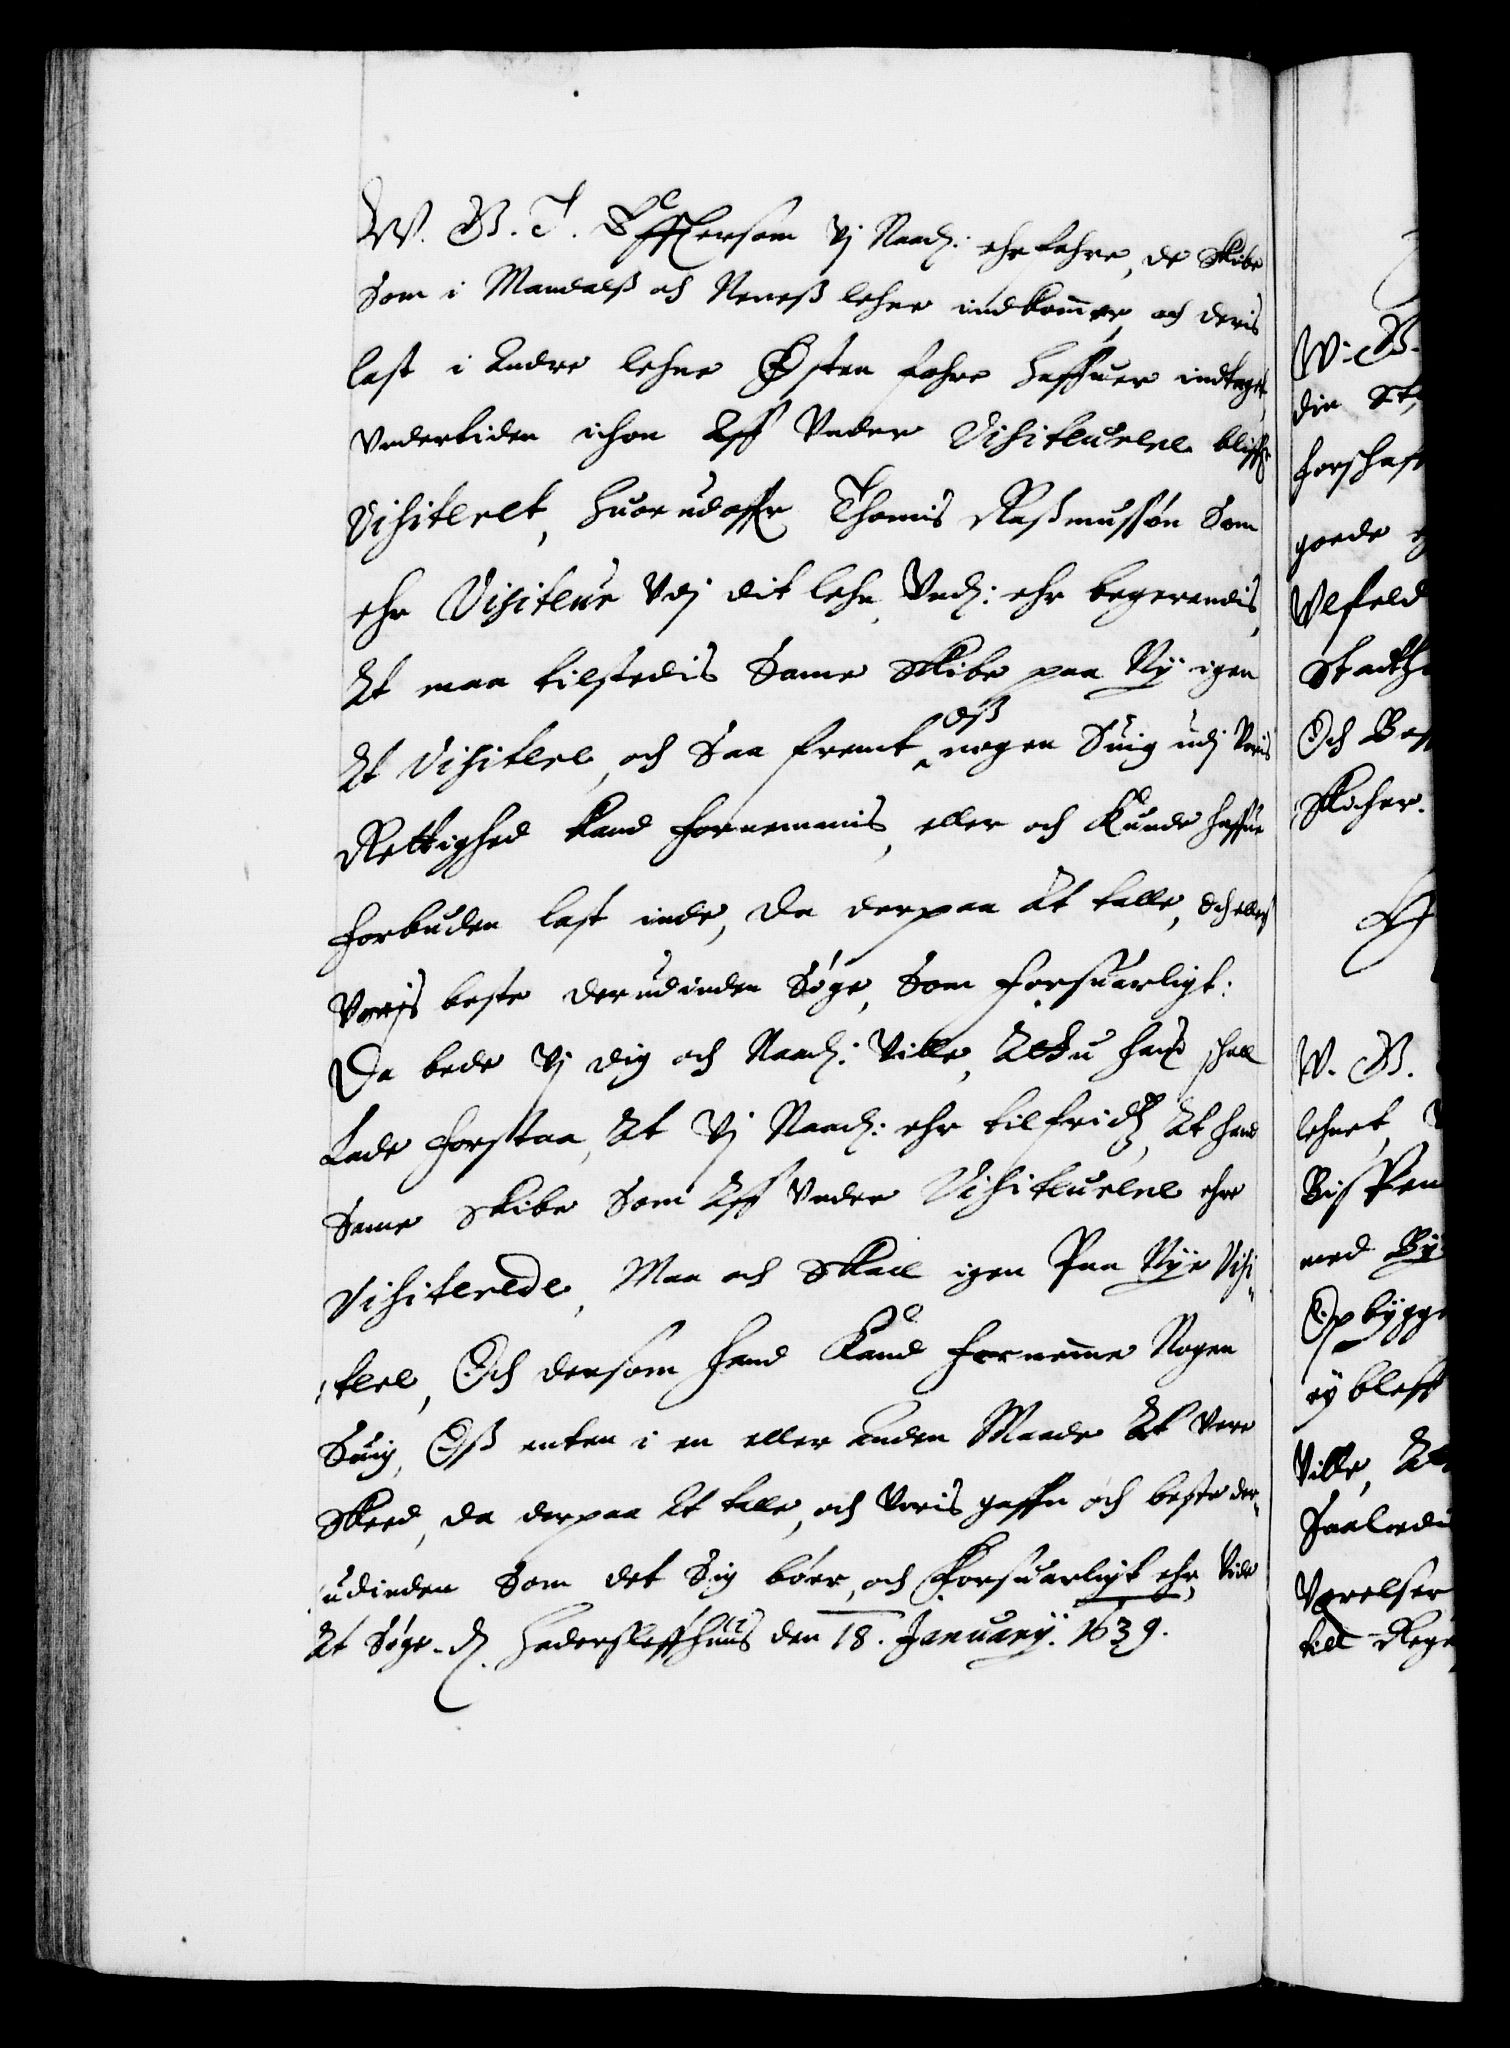 W. G. T. Efftersom Vj Naad: erfahre, de Skibe
Som i Mandalß och Neneß lehne indkommer, och deris
last i Andre lehne Østen fahre haffuer indtaget,
Vndertiden ichon Aff Vnder Visiteurere bliffr
Visiteret, huorudoffr Thomis Raßmussøn Som
ehr Visiteur Vdj dit lehn, Vnd: ehr begerendis,
At maa tilstedis Same Skibe paa Ny igen
At Visitere, och Saa fremt oß nogen Suig udj Voris
Rettighed kand fornemmis, eller och Kunde haffue
forbuden last inde, da derpaa At talle, och ellers
Voris beste derudinden Søge, Som forsuarligt:
Da bede Vj dig och Naad: Ville, At du hans schall
Lade forstaa, At Vj Naad: ehr tilfridz, At hand
Same Skibe Som Aff Vnder Visiteurere ehre
Visiterede, Maa och Skall igen Paa Nye Visi
tere, Och dersom hand Kand fornemme Nogen
Suig, Oß enten i en eller anden Maade At Vere
Skeed, da derpaa At talle, och Voris gaffn och beste der
udinden Som det Sig bør, och forsuarligt ehr, Vide
At Søge. d. Haderßleffhuus den 18. January. 1639.
W. G.
din
forschaf
goede
Ulfeld
Och
Skicher.
W. G.
lehnet,
Bispen
med By
Opbygge
ey bleff
Ville, At
Saaledi
Vorelser
till Rege